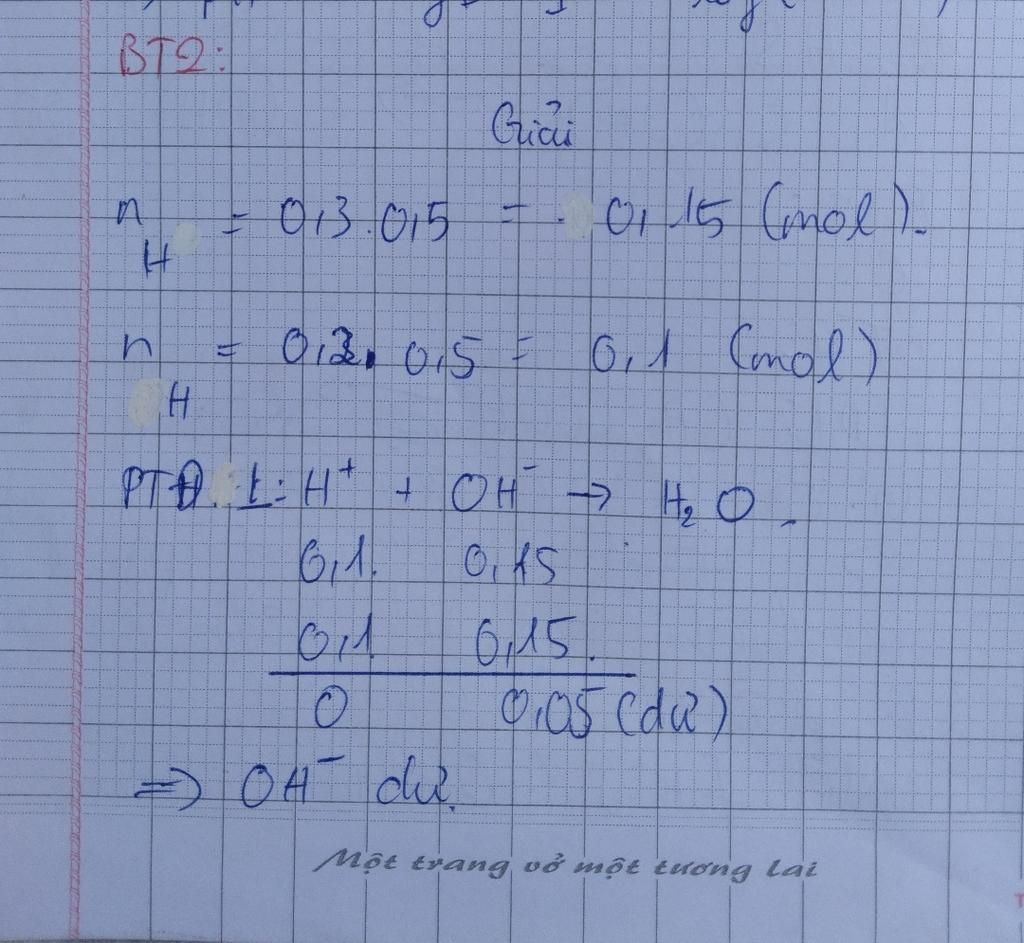 BT2:
Giải
n H = 0,3.0,5 = 0,15 (mol).
n H = 0,2. 0,5 = 0,1 (mol)
PTĐ. t: H⁺ + OH⁻ → H₂O.
0,1. 0,15
0,1 0,15.
0 0,05 (dư)
=> OH⁻ dư.
Một trang vở một tương lai